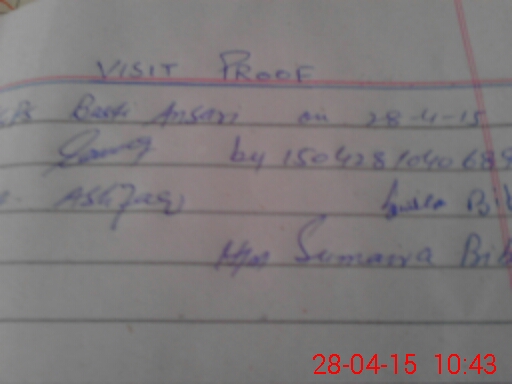 VISIT PROOF
GPS Basti Ansari on 28-4-15
by 150428104068
Ashfaq Bib
Mrs Sumaira Bib
28-04-15 10:43